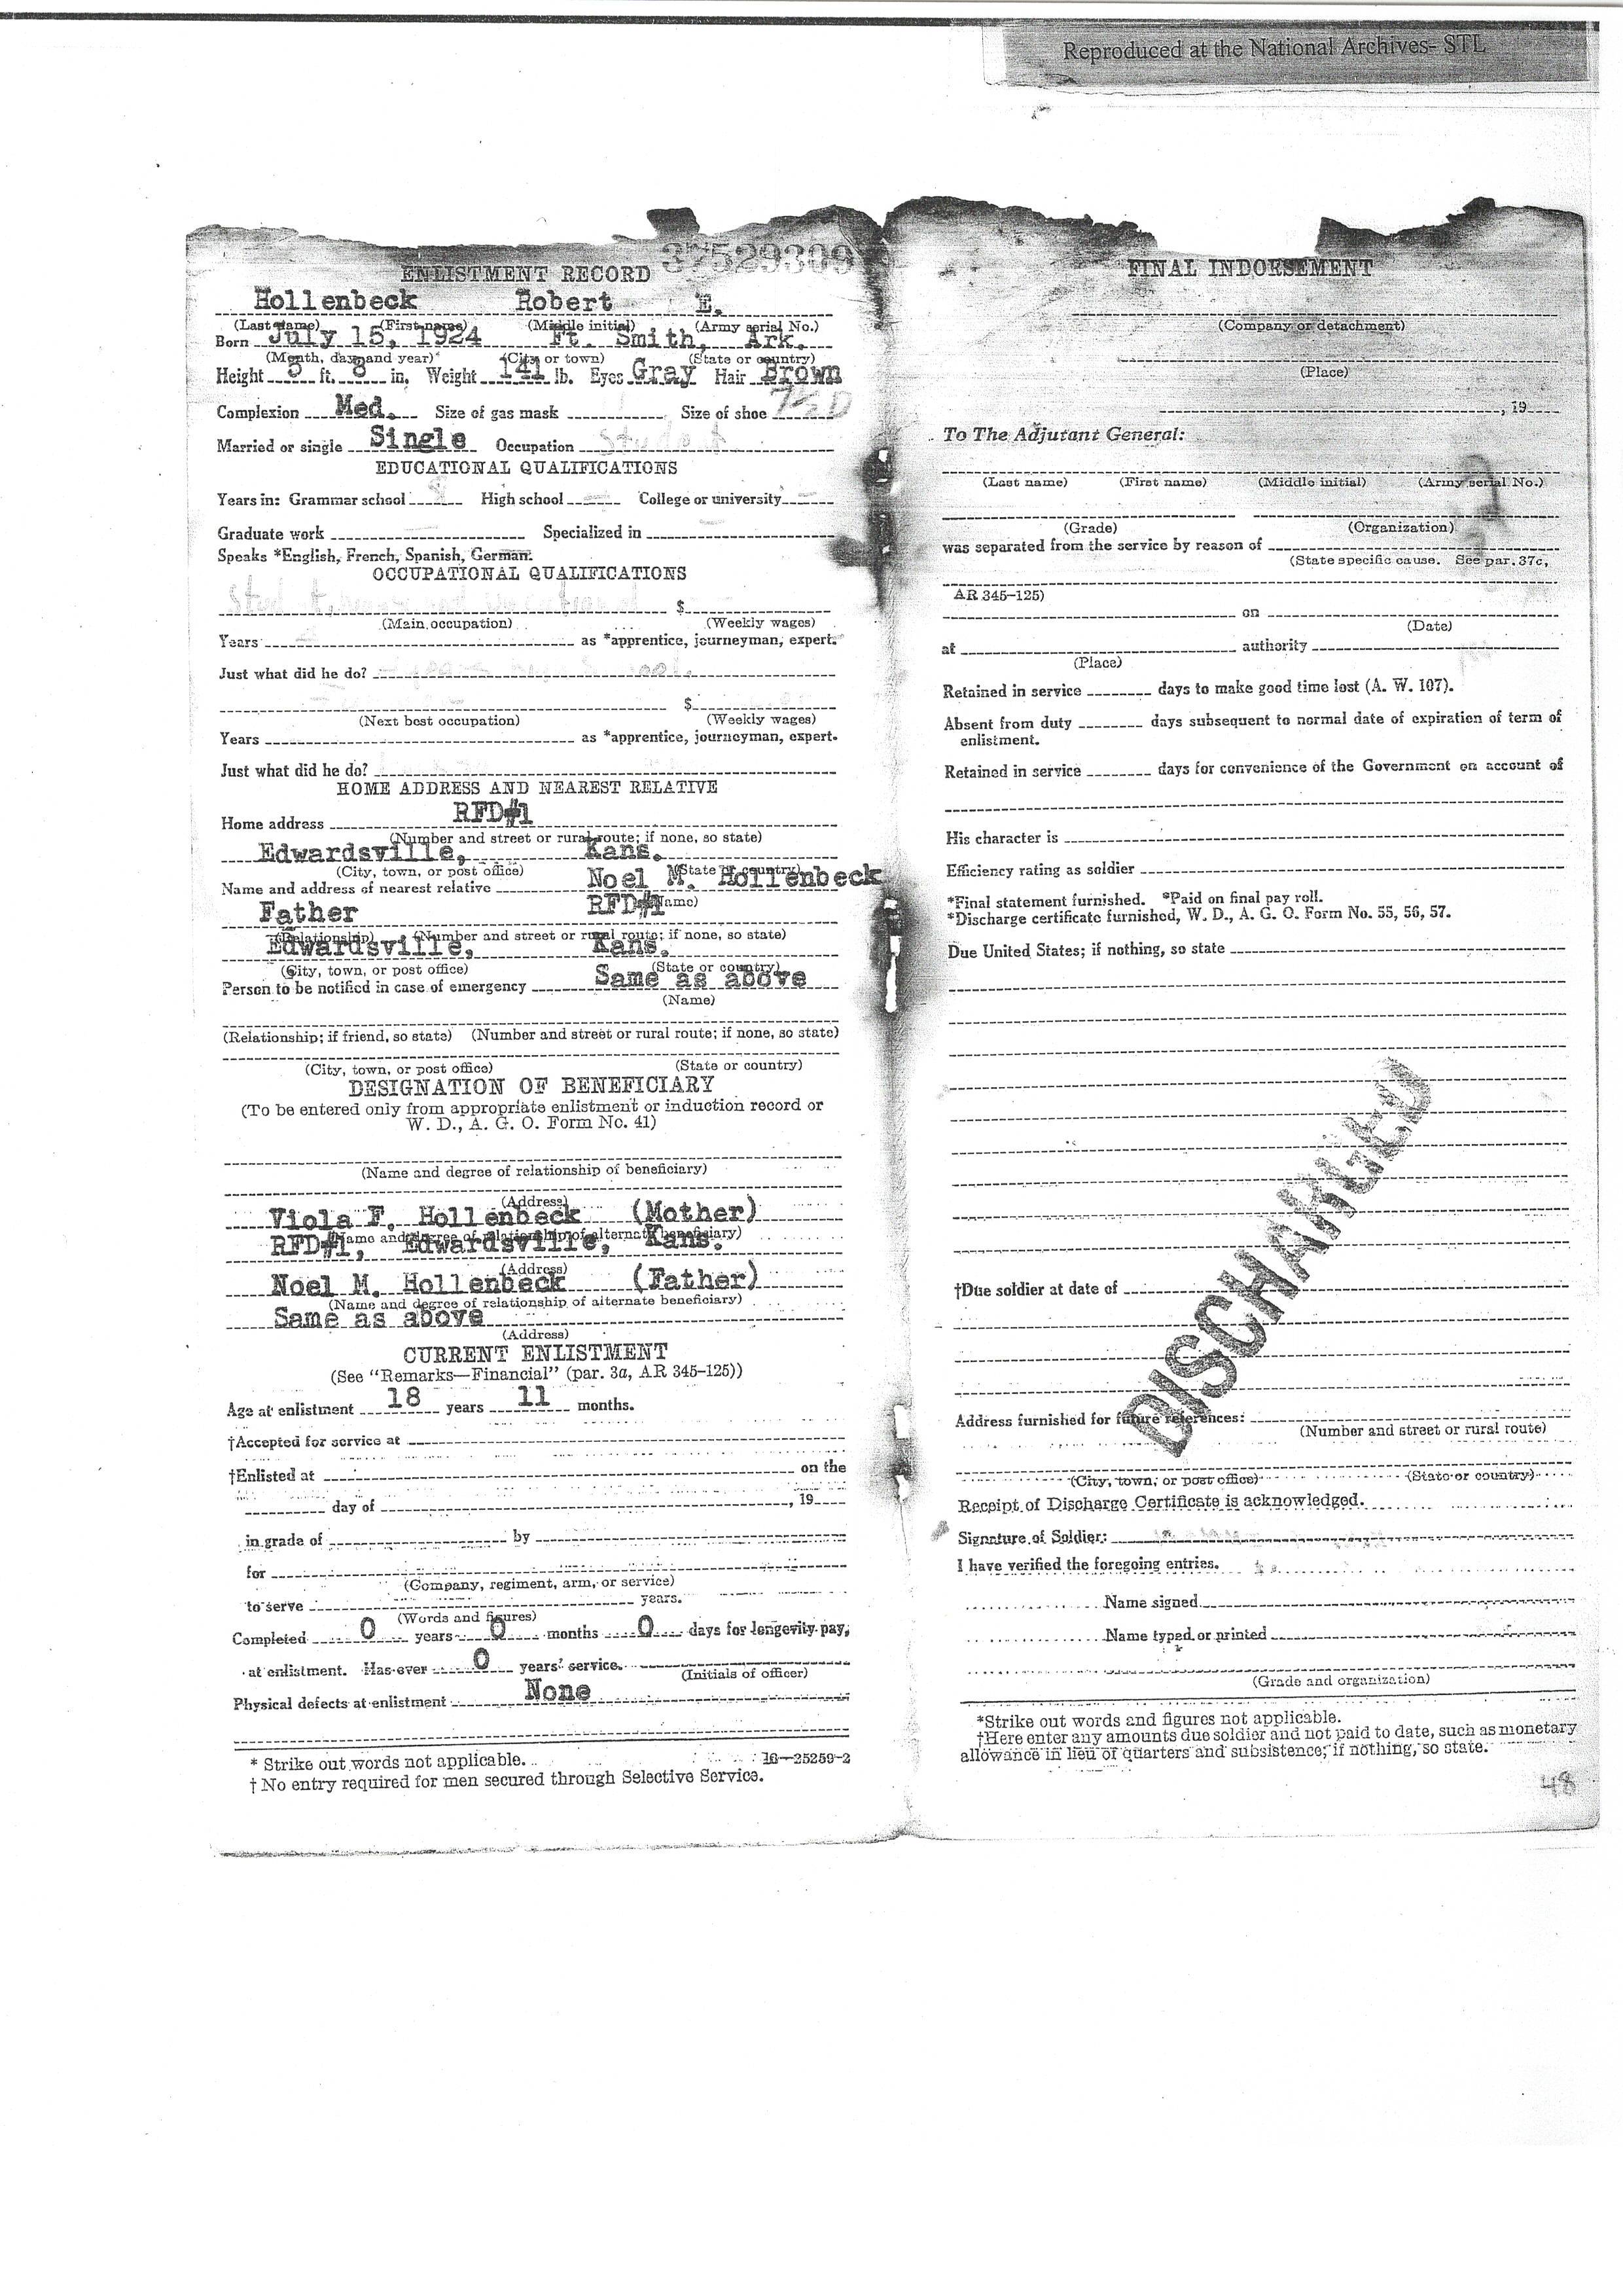 Reproduced at the National Archives- STL
37529309
ENLISTMENT RECORD
Hollenbeck Robert E.
(Last name) (First name) (Middle initial) (Army serial No.)
Born July 15, 1924 Ft. Smith, Ark.
(Month, day, and year) (City or town) (State or country)
Height 5 ft. 8 in. Weight 141 lb. Eyes Gray Hair Brown
Complexion Med. Size of gas mask Size of shoe
Married or single Single Occupation Student
EDUCATIONAL QUALIFICATIONS
Years in: Grammar school High school College or university
Graduate work Specialized in
Speaks *English, French, Spanish, German.
OCCUPATIONAL QUALIFICATIONS
$
(Main occupation) (Weekly wages)
Years as *apprentice, journeyman, expert.
Just what did he do?
$
(Next best occupation) (Weekly wages)
Years as *apprentice, journeyman, expert.
Just what did he do?
HOME ADDRESS AND NEAREST RELATIVE
Home address RFD#1
(Number and street or rural route; if none, so state)
Edwardsville, Kans.
(City, town, or post office) (State or country)
Name and address of nearest relative Noel M. Hollenbeck
(Name)
Father RFD#1
(Relationship) (Number and street or rural route; if none, so state)
Edwardsville, Kans.
(City, town, or post office) (State or country)
Person to be notified in case of emergency Same as above
(Name)
(Relationship; if friend, so state) (Number and street or rural route; if none, so state)
(City, town, or post office) (State or country)
DESIGNATION OF BENEFICIARY
(To be entered only from appropriate enlistment or induction record or
W. D., A. G. O. Form No. 41)
(Name and degree of relationship of beneficiary)
(Address)
Viola F. Hollenbeck (Mother)
(Name and degree of relationship of alternate beneficiary)
RFD#1, Edwardsville, Kans.
(Address)
Noel M. Hollenbeck (Father)
(Name and degree of relationship of alternate beneficiary)
Same as above
(Address)
CURRENT ENLISTMENT
(See "Remarks—Financial" (par. 3a, AR 345-125))
Age at enlistment 18 years 11 months.
†Accepted for service at
†Enlisted at on the
day of , 19
in grade of by
for
(Company, regiment, arm, or service)
to serve years.
(Words and figures)
Completed 0 years 0 months 0 days for longevity pay,
at enlistment. Has over 0 years' service.
(Initials of officer)
Physical defects at enlistment None
* Strike out words not applicable. 16—25259-2
† No entry required for men secured through Selective Service.
FINAL INDORSEMENT
(Company or detachment)
(Place)
, 19
To The Adjutant General:
(Last name) (First name) (Middle initial) (Army serial No.)
(Grade) (Organization)
was separated from the service by reason of
(State specific cause. See par. 37c,
AR 345-125)
on
(Date)
at authority
(Place)
Retained in service days to make good time lost (A. W. 107).
Absent from duty days subsequent to normal date of expiration of term of
enlistment.
Retained in service days for convenience of the Government on account of
His character is
Efficiency rating as soldier
*Final statement furnished. *Paid on final pay roll.
*Discharge certificate furnished, W. D., A. G. O. Form No. 55, 56, 57.
Due United States; if nothing, so state
DISCHARGED
†Due soldier at date of
Address furnished for future references:
(Number and street or rural route)
(City, town, or post office) (State or country)
Receipt of Discharge Certificate is acknowledged.
Signature of Soldier:
I have verified the foregoing entries.
Name signed
Name typed or printed
(Grade and organization)
*Strike out words and figures not applicable.
†Here enter any amounts due soldier and not paid to date, such as monetary
allowance in lieu of quarters and subsistence; if nothing, so state.
48